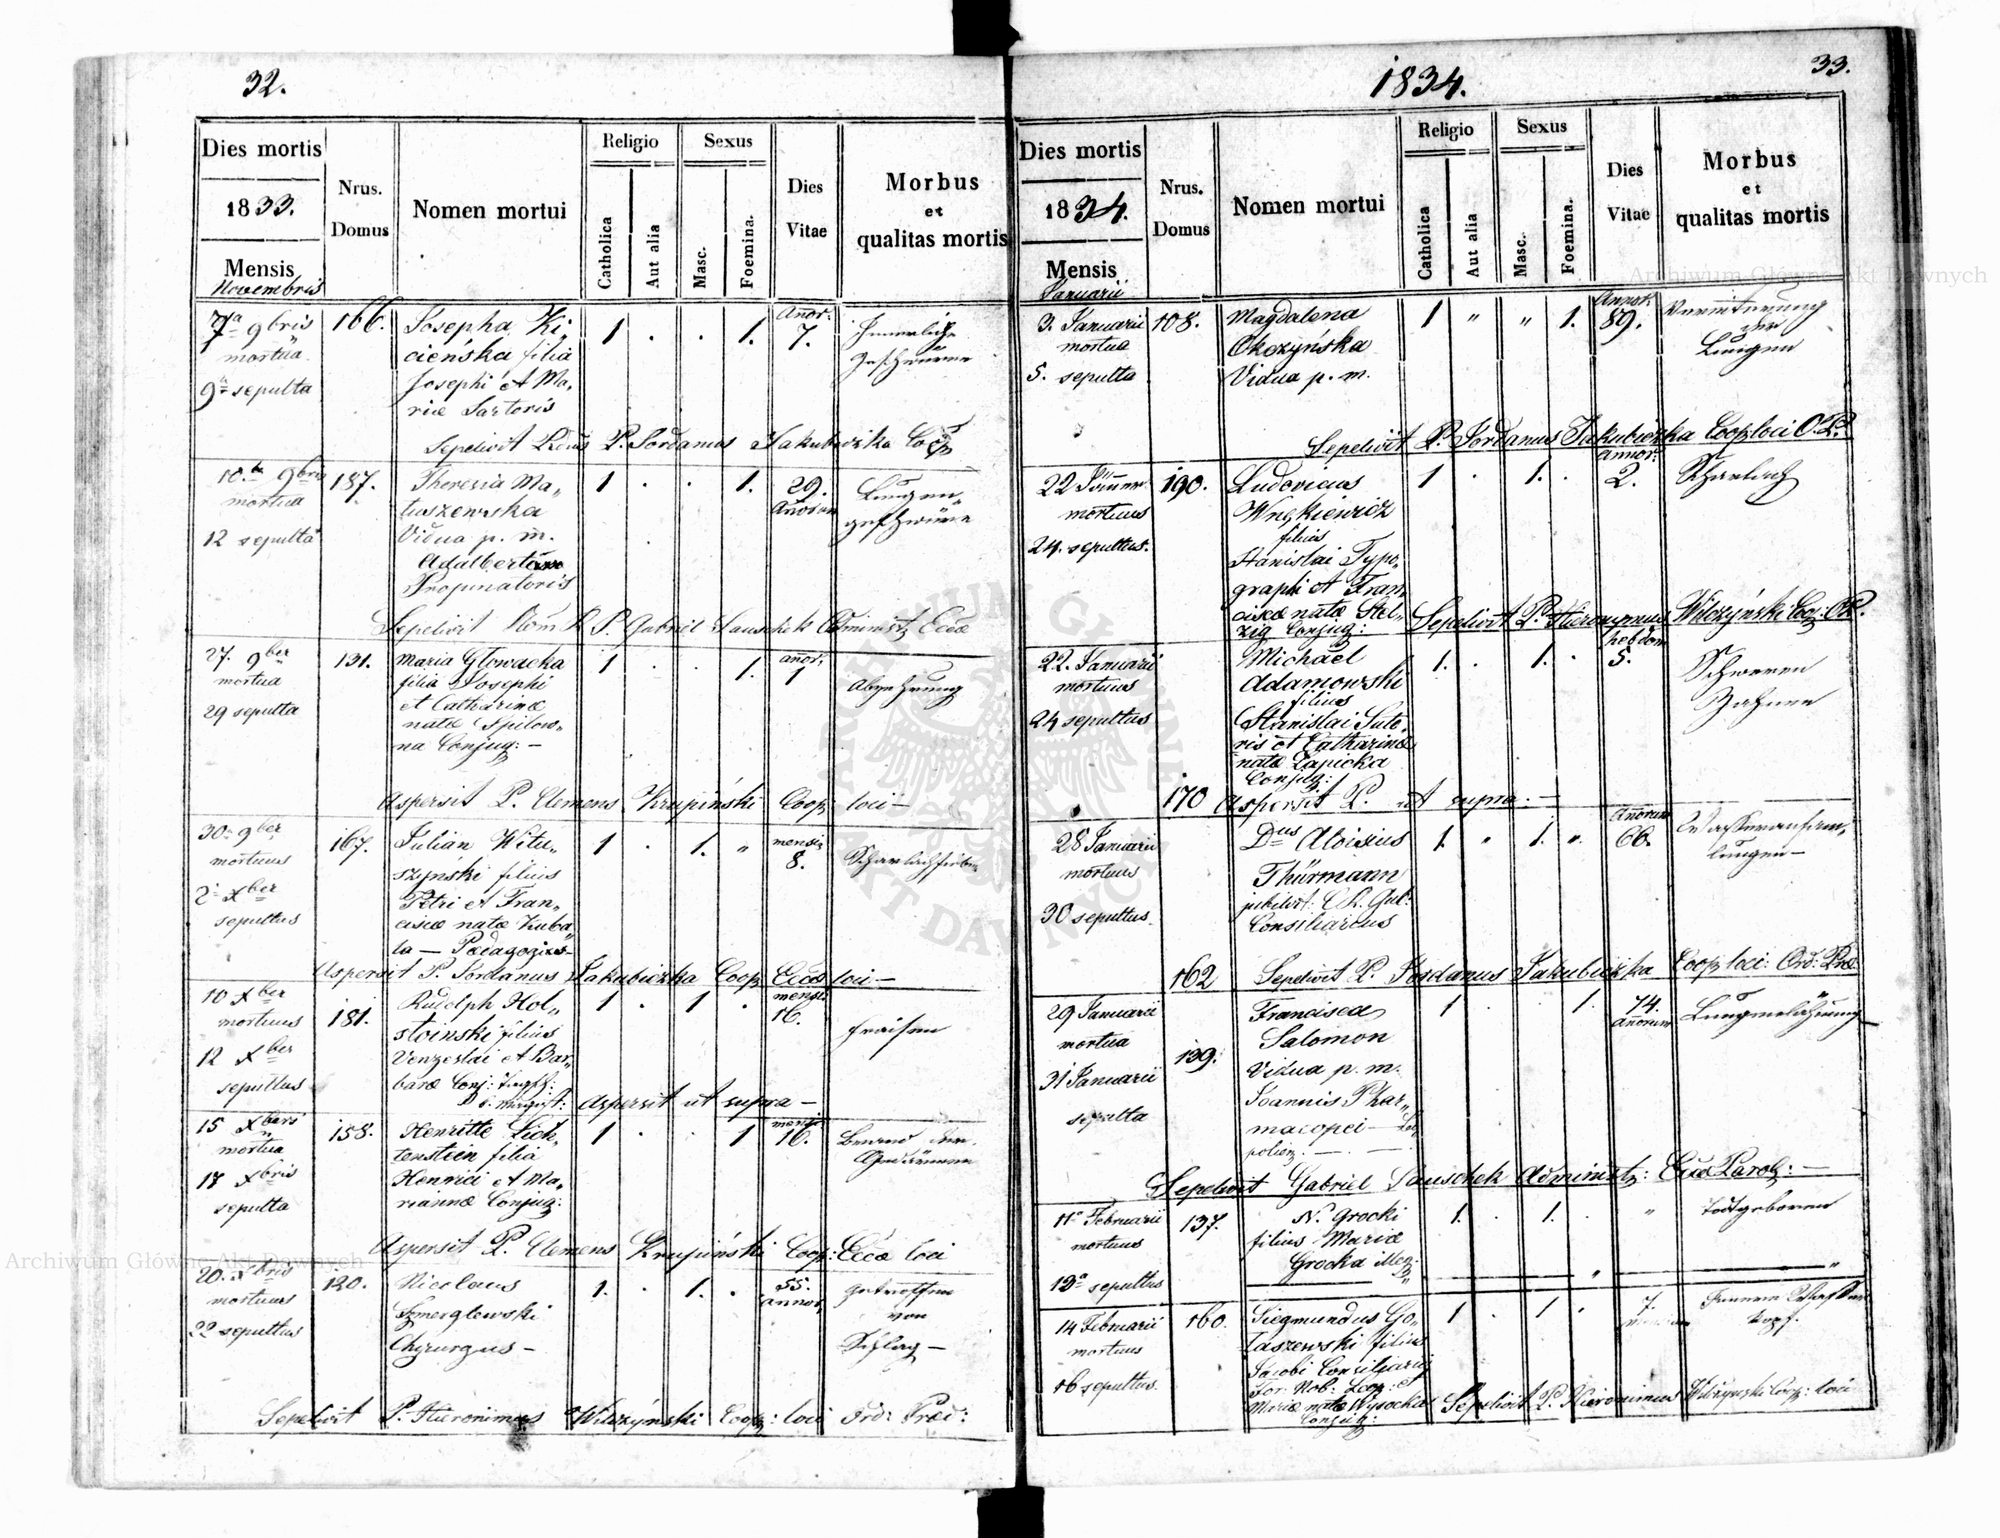 32.
Dies mortis
1833.
Mensis
Novembris
Nrus.
Domus
Nomen mortui
Religio
Catholica
Aut alia
Sexus
Masc.
Foemina.
Dies
Vitae
Morbus
et
qualitas mortis
7a 9bris
mortua
9a sepulta
166.
Josepha Ki
cieńska filia
Josephi et Ma,
riæ Sartoris
1 . . 1.
Anor.
7.
Innerliche
Geschwüre
Sepelivit P. Jordanus Jakubiczka Coop
10. 9bris
mortua
12 sepulta
187.
Theresia Ma,,
tuszewska
Vidua p. m.
Adalberti
Propinatoris
1 . . 1.
29.
Anorum
Lungen,,
geschwüre
Sepelivit P. Gabriel Sauschek Administ Eccæ
27. 9ber
mortua
29 sepulta
131.
Maria Głowacka
filia Josephi
et Catharinæ
natæ Spilow,,
na Conjug: —
1 . . 1.
anor.
1
Abzehrung
Aspersit P. Clemens Krupiński Coop loci —
30. 9ber
mortuus
2. Xber
sepultus
167.
Julian Witu,,
szyński filius
Petri et Fran,,
ciscæ natæ Kuba,,
la — Pædagogi
1 . 1. "
mensi
8.
Scharlachfieber
Aspersit P. Jordanus Jakubiczka Coop Eccæ loci —
10 Xber
mortuus
12 Xber
sepultus
181.
Rudolph Hol,,
stoinski filius
Venzeslai et Bar,,
baræ Conj:
1 . 1 .
mensi
16.
Fraisen
Aspersit ut supra —
15 Xbris
mortua
17 Xbris
sepulta
158.
Henritte Lich,,
tenstein filia
Henrici et Ma,,
riannæ Conjug:
1 . . 1
mensi
16.
Brand der
Gedärmen
Aspersit P. Clemens Krupiński Coop: Eccæ loci
20. Xbris
mortuus
22 sepultus
120.
Nicolaus
Szmerglewski
Chyrurgus —
1. . 1. .
55.
annor.
getroffen
von
Schlag —
Sepelivit P. Hieronimus Wilczyński Coop: loci Ord: Præd:
1834.
33.
Dies mortis
1834.
Mensis
Januarii
Nrus.
Domus
Nomen mortui
Religio
Catholica
Aut alia
Sexus
Masc.
Foemina.
Dies
Vitae
Morbus
et
qualitas mortis
3. Januarii
mortua
5. sepulta
108.
Magdalena
Okczyńska
Vidua p. m.
1 " " 1.
Annor.
89.
Vereiterung
der
Lungen
Sepelivit P. Jordanus Jakubiczka Coop loci O. P.
22
mortuus
24. sepultus.
190.
Ludovicus
Wnękiewicz
filius
Stanislai Typo,,
graphi et Fran,,
ciscæ natæ Stel,,
zig Conjug:
1 . 1. .
annor:
2.
Scharlach
Sepelivit P. Hieronymus Wilczyński Coop: O.P.
22. Januarii
mortuus
24 sepultus
170
Michael
Adamowski
filius
Stanislai Suto,,
ris et Catharinæ
natæ Łapicka
Conjug:
1. . 1. .
hebdom
5.
Schweren
Zahnen
Aspersit P. ut supra. —
28 Januarii
mortuus
30 sepultus.
162
Dnus Aloisius
Thürmann
jubilat: C. R. Gub:
Consiliarius
1. " 1. "
Anorum
66.
Sepelivit P. Jordanus Jakubiczka Coop loci: Ord: Præ:
29 Januarii
mortua
31 Januarii
sepulta
139.
Francisca
Salomon
Vidua p. m.
Joannis Phar,,
macopei —
1 . . 1.
74.
anorum
Lungenlähmung
Sepelivit Gabriel Sauschek Administ: Eccæ Paroch: —
11a Februarii
mortuus
13a sepultus
137.
N. Grocki
filius Mariæ
Grocka illeg:
1. . 1. . "
Todtgeboren
14 Februarii
mortuus
16 sepultus.
160.
Siegmundus Go,,
łaszewski filius
Jacobi Consiliarij
For: Nob: Leop: et
Mariæ natæ Wysocka
Conjug:
1 . 1 .
7.
Sepelivit P. Hieronimus Wilczyński Coop: loci
Archiwum Główne Akt Dawnych
Archiwum Główne Akt Dawnych
ARCHIWUM GŁÓWNE AKT DAWNYCH